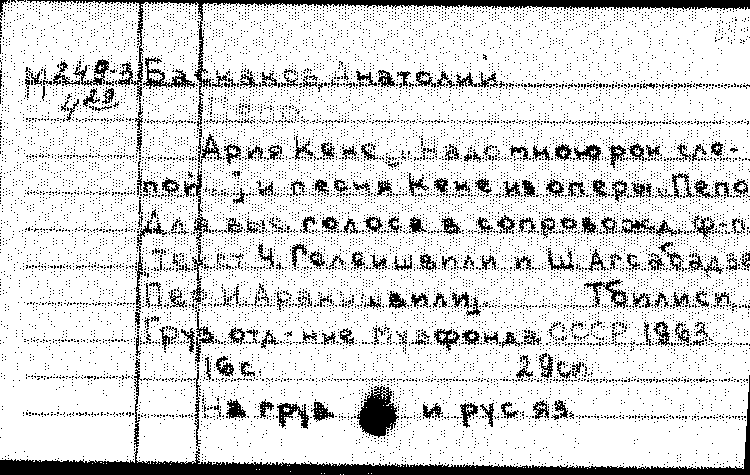 М 249-3 Баскаков, Анатолий
429
Пепо
Ария Кеке „Надо мною рок сле-
пой..." и песня Кеке из оперы Пепо
Для выс. голоса в сопровожд. ф-п.
[Текст Ч. Гелеишвили и Ш. Агсабадзе
Пер. И. Аракишвили]. Тбилиси,
Груз. отд-ние Музфонда СССР, 1963
16 с. 29 см.
На груз. и рус. яз.